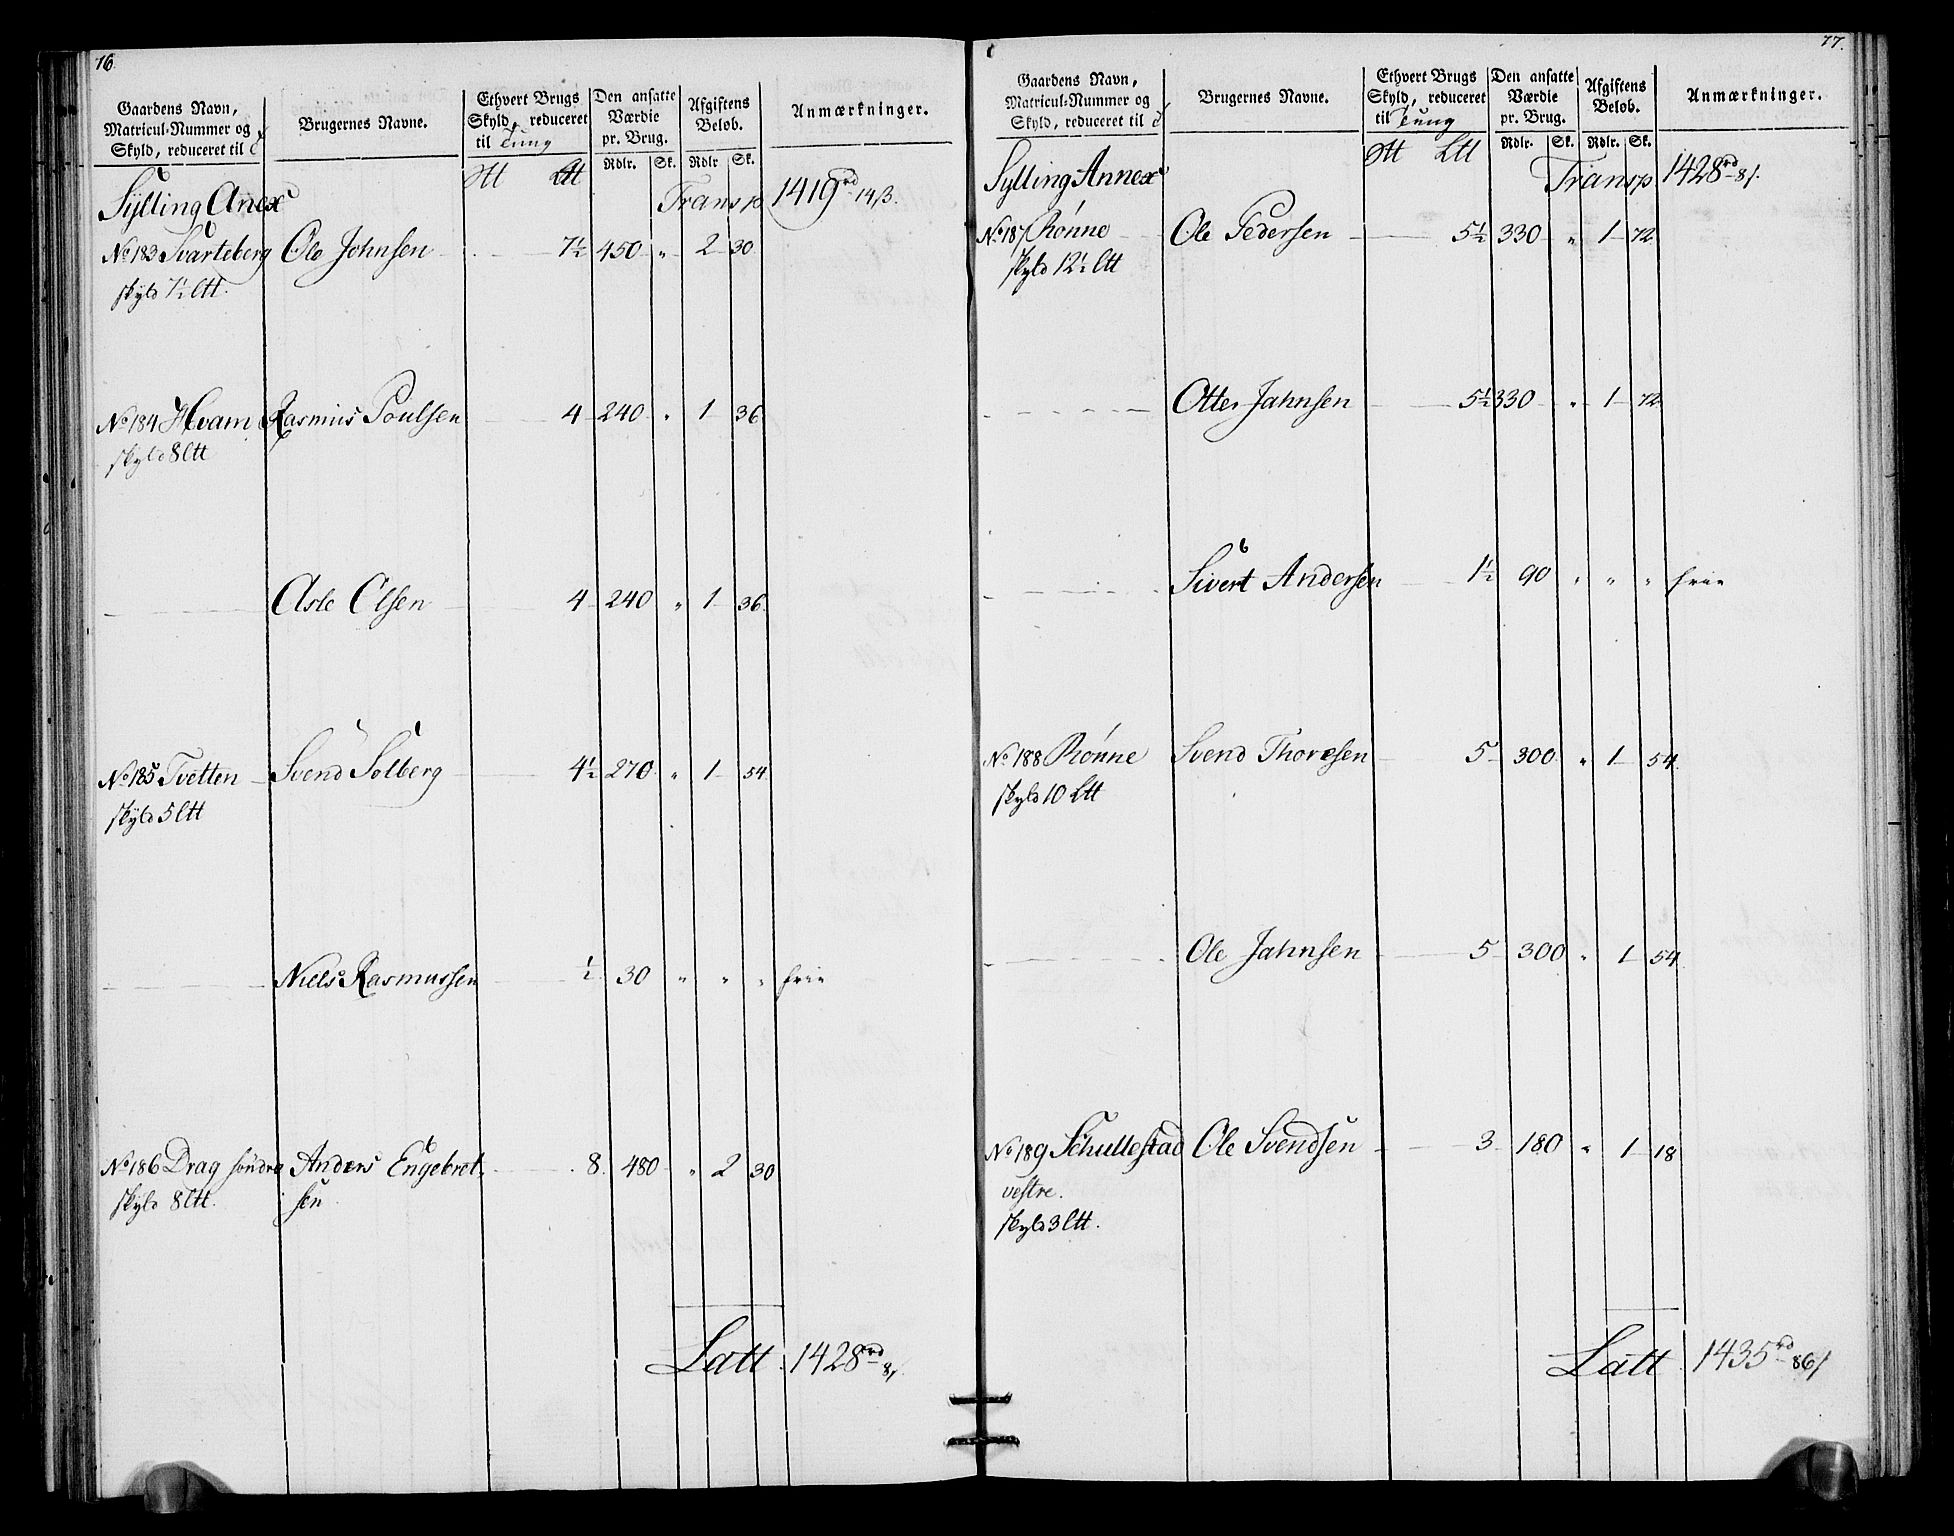 76.
Gaardens Navn, Matricul-Nummer og Skyld, reduceret til
Brugernes Navne.
Ethvert Brugs Skyld, reduceret til Tung
Den ansatte Værdie pr. Brug.
Afgiftens Beløb.
Anmærkninger.
Rdlr. Sk. Rdlr Sk.
Sylling Anex Transp 1419rd 14β.
No 183 Svarteberg Ole Johnsen 7½ 450 " 2 30
skyld 7½ Ltt.
No 184 Hvam Rasmus Poulsen 4 240 " 1 36
skyld 8 Ltt
Asle Olsen 4 240 " 1 36
No 185 Tvetten Svend Solberg 4½ 270 " 1 54
skyld 5 Ltt
Niels Rasmussen ½ 30 " " " frie
No 186 Drag søndre Anders Engebret-
skyld 8 Ltt. sen 8 480 " 2 30
Latt 1428rd 8β
77.
Gaardens Navn, Matricul-Nummer og Skyld, reduceret til
Brugernes Navne.
Ethvert Brugs Skyld, reduceret til Tung
Den ansatte Værdie pr. Brug.
Afgiftens Beløb.
Anmærkninger.
Rdlr. Sk. Rdlr. Sk.
Ltt
Sylling Annex Transp 1428rd 8β.
No 187 Rønne Ole Pedersen 5½ 330 " 1 72
skyld 12½ Ltt
Otter Jahnsen 5½ 330 " 1 72
Sivert Andersen 1½ 90 " " " frie
No 188 Rønne Svend Thoresen 5 300 " 1 54
skyld 10 Ltt
Ole Jahnsen 5 300 " 1 54
No 189 Schullestad Ole Svendsen 3 180 " 1 18
vestre.
skyld 3 Ltt.
Latt 1435rd 86β